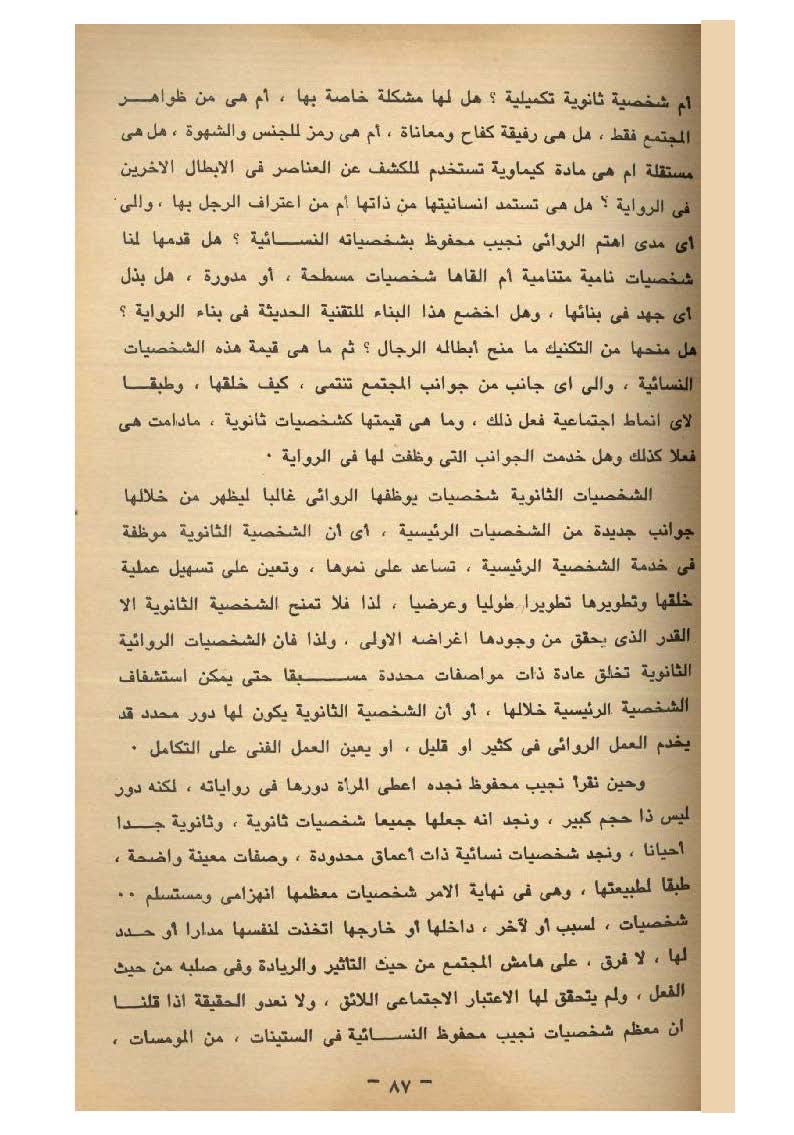 أم شخصية ثانوية تكميلية ؟ هل لها مشكلة خاصة بها ، أم هى من ظواهــر
المجتمع فقط ، هل هى رفيقة كفاح ومعاناة ، أم هى رمز للجنس والشهوة ، هل هى
مستقلة ام هى مادة كيماوية تستخدم للكشف عن العناصر فى الابطال الاخرين
فى الرواية ؟ هل هى تستمد انسانيتها من ذاتها أم من اعتراف الرجل بها ، والى
أى مدى اهتم الروائى نجيب محفوظ بشخصياته النســائية ؟ هل قدمها لنا
شخصيات نامية متنامية أم القاها شخصيات مسطحة ، أو مدورة ، هل بذل
أى جهد فى بنائها ، وهل اخضع هذا البناء للتقنية الحديثة فى بناء الرواية ؟
هل منحها من التكنيك ما منح أبطاله الرجال ؟ ثم ما هى قيمة هذه الشخصيات
النسائية ، والى اى جانب من جوانب المجتمع تنتمى ، كيف خلقها ، وطبقــا
لاى انماط اجتماعية فعل ذلك ، وما هى قيمتها كشخصيات ثانوية ، مادامت هى
فعلا كذلك وهل خدمت الجوانب التى وظفت لها فى الرواية ٠
الشخصيات الثانوية شخصيات يوظفها الروائى غالبا ليظهر من خلالها
جوانب جديدة من الشخصيات الرئيسية ، أى أن الشخصية الثانوية موظفة
فى خدمة الشخصية الرئيسية ، تساعد على نموها ، وتعين على تسهيل عملية
خلقها وتطويرها تطويرا طوليا وعرضيا ، لذا فلا تمنح الشخصية الثانوية الا
القدر الذى يحقق من وجودها اغراضه الاولى ، ولذا فان الشخصيات الروائية
الثانوية تخلق عادة ذات مواصفات محددة مســـبقا حتى يمكن استشفاف
الشخصية الرئيسية خلالها ، أو أن الشخصية الثانوية يكون لها دور محدد قد
يخدم العمل الروائى فى كثير او قليل ، او يعين العمل الفنى على التكامل ٠
وحين نقرأ نجيب محفوظ نجده اعطى المرأة دورها فى رواياته ، لكنه دور
ليس ذا حجم كبير ، ونجد انه جعلها جميعا شخصيات ثانوية ، وثانوية جــدا
أحيانا ، ونجد شخصيات نسائية ذات أعماق محدودة ، وصفات معينة واضحة ،
طبقا لطبيعتها ، وهى فى نهاية الامر شخصيات معظمها انهزامى ومستسلم ٠٠
شخصيات ، لسبب أو لآخر ، داخلها أو خارجها اتخذت لنفسها مدارا أو حــدد
لها ، لا فرق ، على هامش المجتمع من حيث التأثير والريادة وفى صلبه من حيث
الفعل ، ولم يتحقق لها الاعتبار الاجتماعى اللائق ، ولا نعدو الحقيقة اذا قلنــا
ان معظم شخصيات نجيب محفوظ النســائية فى الستينات ، من المومسات ،
– ٨٧ –